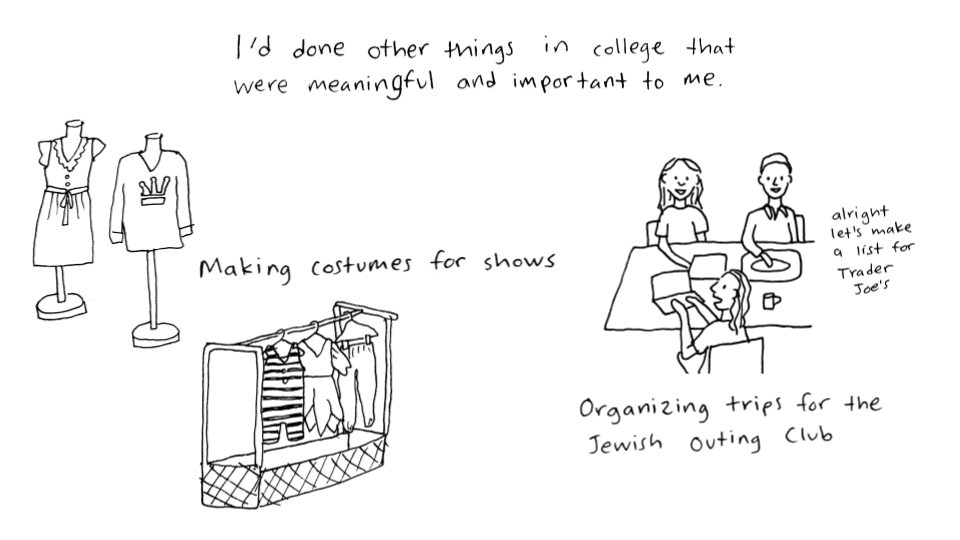 I'd done other things in college that
were meaningful and important to me.
Making costumes for shows
alright
let's make
a list for
Trader
Joe's
Organizing trips for the
Jewish Outing Club